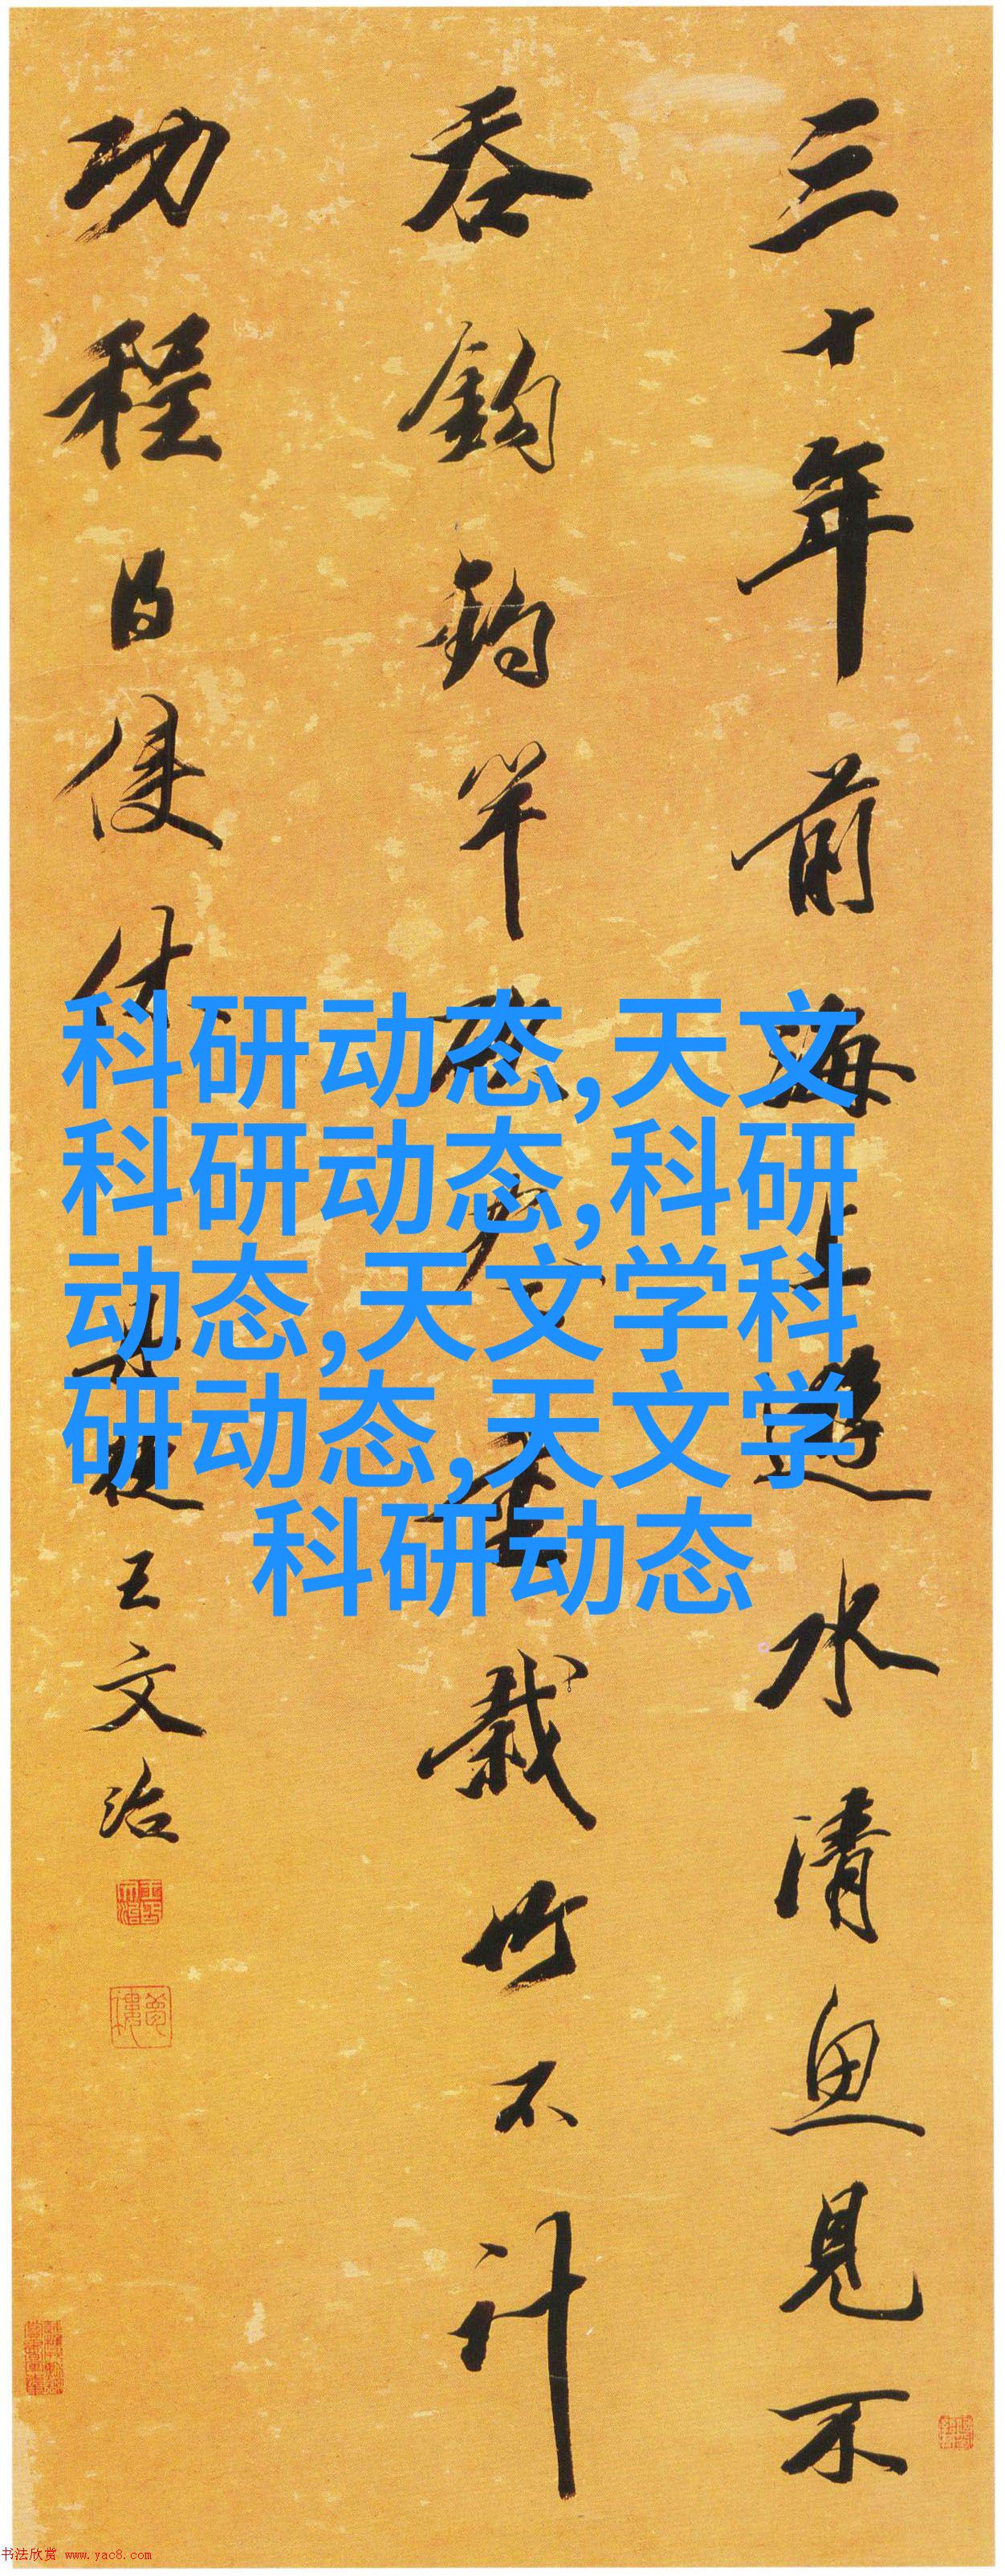 三十年前海上遊水清魚見不
吞鈎釣竿斫盡重栽竹不計
功程得便休
王文治
科研动态,天文
科研动态,科研
动态,天文学科
研动态,天文学
科研动态
书法欣赏 www.yac8.com